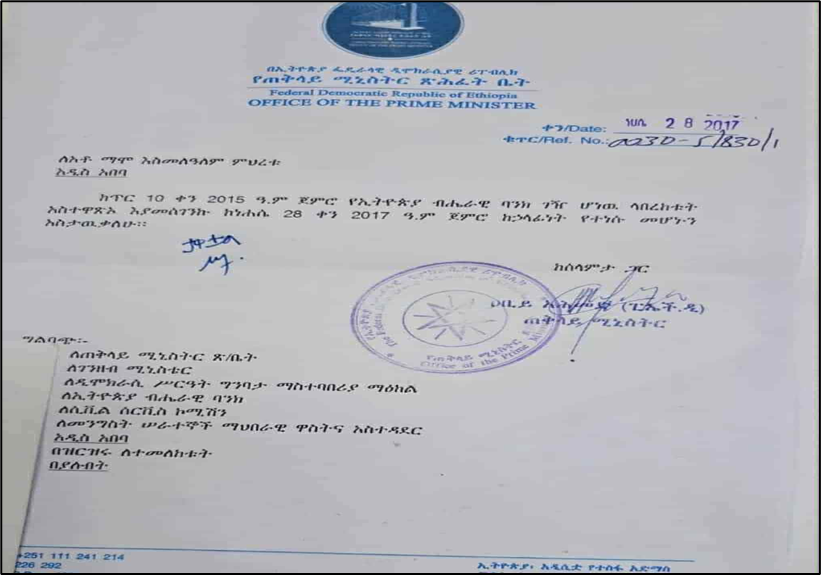 በኢትዮጵያ ፌዴራላዊ ዲሞክራሲያዊ ሪፐብሊክ
የጠቅላይ ሚኒስትር ጽሕፈት ቤት
Federal Democratic Republic of Ethiopia
OFFICE OF THE PRIME MINISTER
ቀን/Date: ነሀሴ 28 2017
ቁጥር/Ref. No.:
ለአቶ ማሞ እስመለዓለም ምህረቱ
አዲስ አበባ
ከጥር 10 ቀን 2015 ዓ.ም ጀምሮ የኢትዮጵያ ብሔራዊ ባንክ ገዥ ሆነዉ ላበረከቱት
አስተዋጽኦ እያመሰገንኩ ከነሐሴ 28 ቀን 2017 ዓ.ም ጀምሮ ከኃላፊነት የተነሱ መሆኑን
አስታዉቃለሁ፡፡
ከሰላምታ ጋር
ዐቢይ አሕመድ (ፒ.ኤች.ዲ)
ጠቅላይ ሚኒስትር
የጠቅላይ ሚኒስትር
Office of the Prime Minister
ግልባጭ፡-
ለጠቅላይ ሚኒስትር ጽ/ቤት
ለገንዘብ ሚኒስቴር
ለዲሞክራሲ ሥርዓት ግንባታ ማስተባበሪያ ማዕከል
ለኢትዮጵያ ብሔራዊ ባንክ
ለሲቪል ሰርቪስ ኮሚሽን
ለመንግስት ሠራተኞች ማህበራዊ ዋስትና አስተዳደር
አዲስ አበባ
በዝርዝሩ ለተመለከቱት
ባያሉበት
+251 111 241 214
226 292
ኢትዮጵያ፡ አዲሲቷ የተስፋ አድማስ